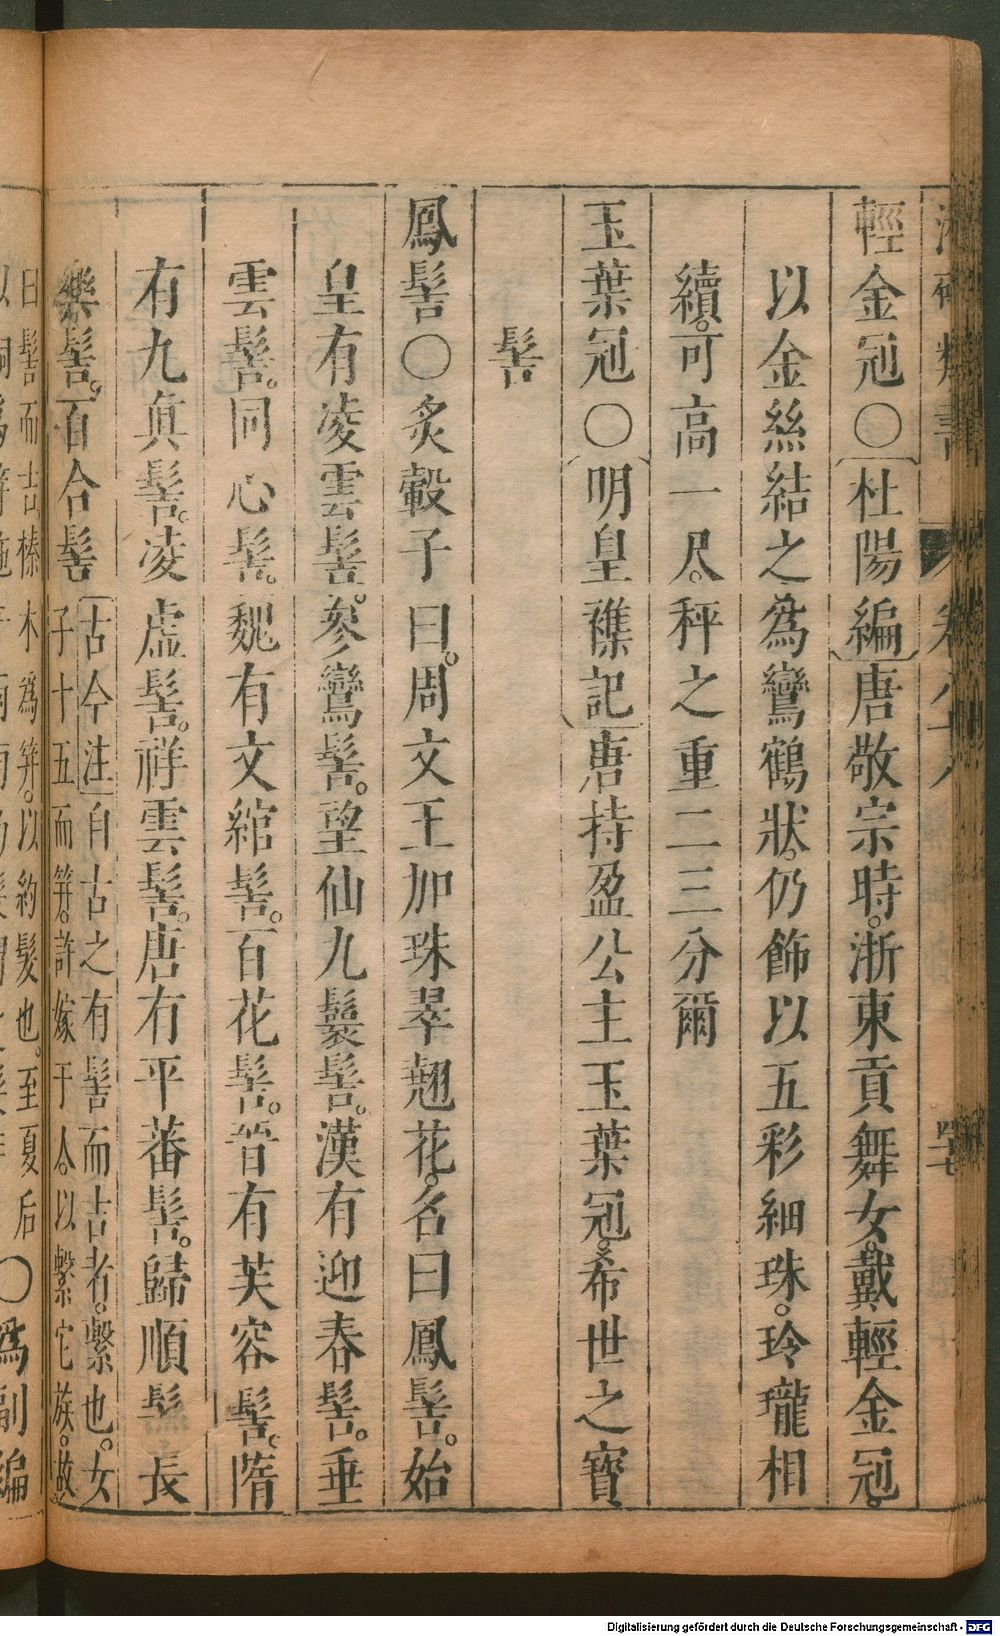 輕金冠〇杜陽編唐敬宗時。浙東貢舞女。戴輕金冠。
以金絲結之為鸞鶴狀。仍飾以五彩細珠。玲瓏相
續。可高一尺。秤之重二三分爾
玉葉冠〇明皇襍記唐持盈公主玉葉冠。希世之寶
髻
鳳髻〇炙轂子曰。周文王加珠翠翹花。名曰鳳髻。始
皇有凌雲髻。參鸞髻。望仙九鬟髻。漢有迎春髻。垂
雲髻。同心髻。魏有文綰髻。百花髻。晉有芙蓉髻。隋
有九真髻。凌虛髻。祥雲髻。唐有平蕃髻。歸順髻長
樂髻。百合髻
古今注自古之有髻而吉者。繫也。女
子十五而笄。許嫁于人。以繫它族。故
曰髻而吉榛木為笄。以約髮也。至夏后
〇為副編
Digitalisierung gefördert durch die Deutsche Forschungsgemeinschaft - DFG